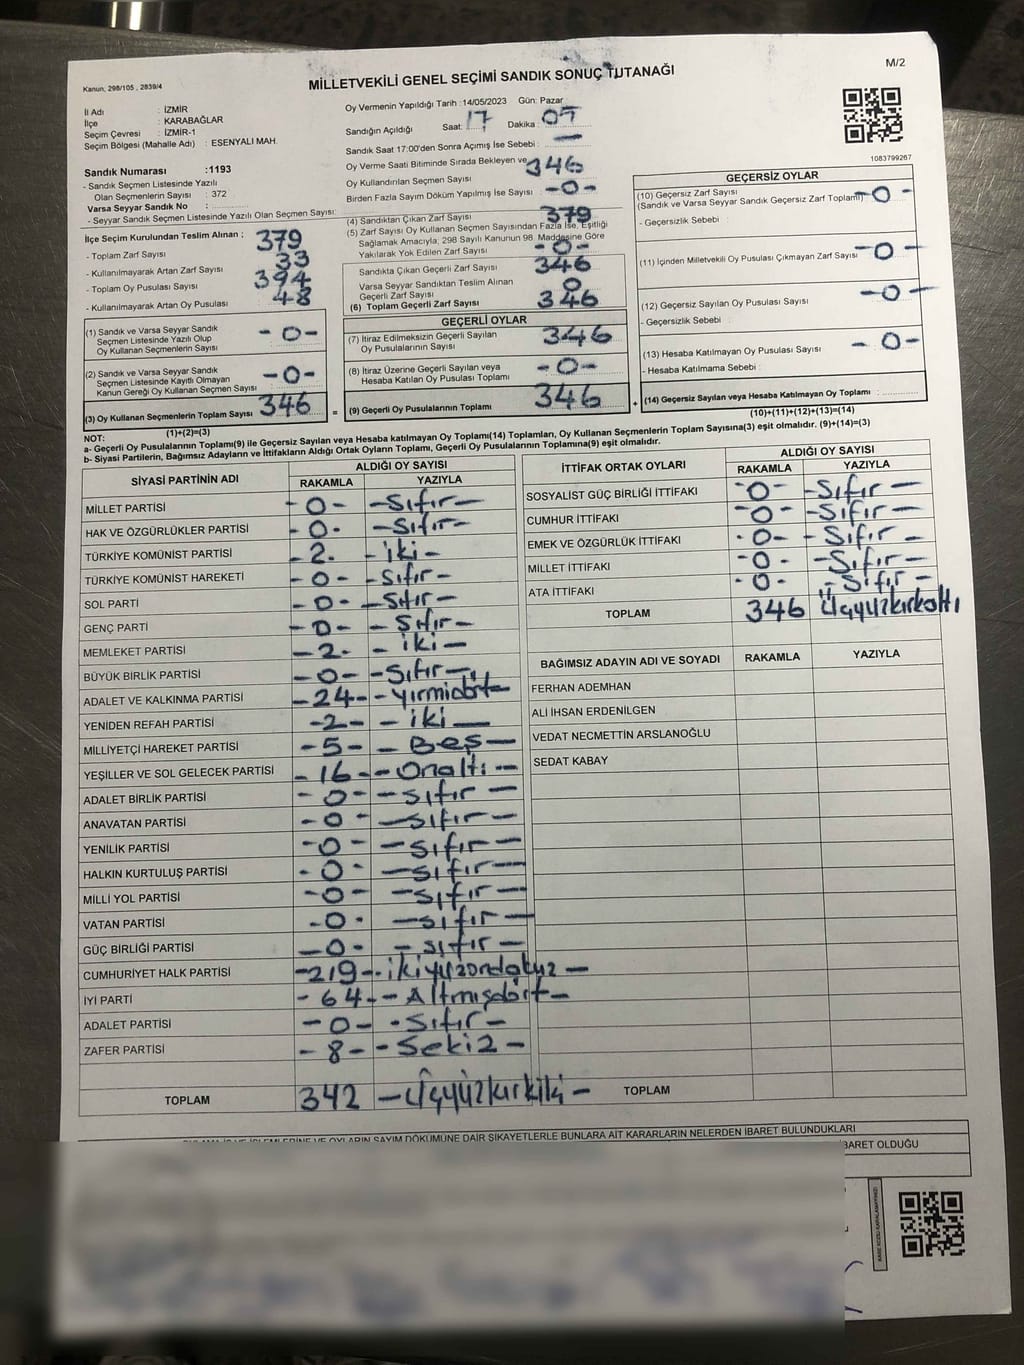 M/2
Kanun, 298/105 , 2839/4
MİLLETVEKİLİ GENEL SEÇİMİ SANDIK SONUÇ TUTANAĞI
İl Adı : İZMİR
İlçe : KARABAĞLAR
Seçim Çevresi : İZMİR-1
Seçim Bölgesi (Mahalle Adı) : ESENYALI MAH.
Sandık Numarası :1193
- Sandık Seçmen Listesinde Yazılı
Olan Seçmenlerin Sayısı : 372
Varsa Seyyar Sandık No :
- Seyyar Sandık Seçmen Listesinde Yazılı Olan Seçmen Sayısı:
İlçe Seçim Kurulundan Teslim Alınan ;
- Toplam Zarf Sayısı 379
- Kullanılmayarak Artan Zarf Sayısı 33
- Toplam Oy Pusulası Sayısı 394
- Kullanılmayarak Artan Oy Pusulası 48
(1) Sandık ve Varsa Seyyar Sandık
Seçmen Listesinde Yazılı Olup
Oy Kullanan Seçmenlerin Sayısı -0-
(2) Sandık ve Varsa Seyyar Sandık
Seçmen Listesinde Kayıtlı Olmayan
Kanun Gereği Oy Kullanan Seçmen Sayısı -0-
(3) Oy Kullanan Seçmenlerin Toplam Sayısı 346
(1)+(2)=(3)
Oy Vermenin Yapıldığı Tarih :14/05/2023 Gün: Pazar
Sandığın Açıldığı Saat: 17 Dakika: 07
Sandık Saat 17:00'den Sonra Açımış İse Sebebi : —
Oy Verme Saati Bitiminde Sırada Bekleyen ve
Oy Kullandırılan Seçmen Sayısı 346
Birden Fazla Sayım Döküm Yapılmış İse Sayısı -0-
(4) Sandıktan Çıkan Zarf Sayısı 379
(5) Zarf Sayısı Oy Kullanan Seçmen Sayısından Fazla İse, Eşitliği
Sağlamak Amacıyla, 298 Sayılı Kanunun 98. Maddesine Göre
Yakılarak Yok Edilen Zarf Sayısı -0-
Sandıkta Çıkan Geçerli Zarf Sayısı 346
Varsa Seyyar Sandıktan Teslim Alınan
Geçerli Zarf Sayısı 0
(6) Toplam Geçerli Zarf Sayısı 346
GEÇERLİ OYLAR
(7) İtiraz Edilmeksizin Geçerli Sayılan
Oy Pusulalarının Sayısı 346
(8) İtiraz Üzerine Geçerli Sayılan veya
Hesaba Katılan Oy Pusulası Toplamı -0-
= (9) Geçerli Oy Pusulalarının Toplamı 346
1083799267
GEÇERSİZ OYLAR
(10) Geçersiz Zarf Sayısı
(Sandık ve Varsa Seyyar Sandık Geçersiz Zarf Toplamı) -0-
- Geçersizlik Sebebi :
(11) İçinden Milletvekili Oy Pusulası Çıkmayan Zarf Sayısı -0-
(12) Geçersiz Sayılan Oy Pusulası Sayısı -0-
- Geçersizlik Sebebi :
(13) Hesaba Katılmayan Oy Pusulası Sayısı -0-
- Hesaba Katılmama Sebebi :
+ (14) Geçersiz Sayılan veya Hesaba Katılmayan Oy Toplamı :
(10)+(11)+(12)+(13)=(14)
NOT:
a- Geçerli Oy Pusulalarının Toplamı(9) ile Geçersiz Sayılan veya Hesaba katılmayan Oy Toplamı(14) Toplamları, Oy Kullanan Seçmenlerin Toplam Sayısına(3) eşit olmalıdır. (9)+(14)=(3)
b- Siyasi Partilerin, Bağımsız Adayların ve İttifakların Aldığı Ortak Oyların Toplamı, Geçerli Oy Pusulalarının Toplamına(9) eşit olmalıdır.
SİYASİ PARTİNİN ADI ALDIĞI OY SAYISI
RAKAMLA YAZIYLA
MİLLET PARTİSİ -0- -Sıfır-
HAK VE ÖZGÜRLÜKLER PARTİSİ -0- -Sıfır-
TÜRKİYE KOMÜNİST PARTİSİ -2- -iki-
TÜRKİYE KOMÜNİST HAREKETİ -0- -Sıfır-
SOL PARTİ -0- -Sıfır-
GENÇ PARTİ -0- -Sıfır-
MEMLEKET PARTİSİ -2- -iki-
BÜYÜK BİRLİK PARTİSİ -0- -Sıfır-
ADALET VE KALKINMA PARTİSİ -24- -yirmidört-
YENİDEN REFAH PARTİSİ -2- -iki-
MİLLİYETÇİ HAREKET PARTİSİ -5- -Beş-
YEŞİLLER VE SOL GELECEK PARTİSİ -16- -Onaltı-
ADALET BİRLİK PARTİSİ -0- -sıfır-
ANAVATAN PARTİSİ -0- -sıfır-
YENİLİK PARTİSİ -0- -sıfır-
HALKIN KURTULUŞ PARTİSİ -0- -sıfır-
MİLLİ YOL PARTİSİ -0- -sıfır-
VATAN PARTİSİ -0- -sıfır-
GÜÇ BİRLİĞİ PARTİSİ -0- -sıfır-
CUMHURİYET HALK PARTİSİ -219- -ikiyüzondokuz-
İYİ PARTİ -64- -Altmışdört-
ADALET PARTİSİ -0- -Sıfır-
ZAFER PARTİSİ -8- -Sekiz-
TOPLAM 342 -Üçyüzkırkiki-
İTTİFAK ORTAK OYLARI ALDIĞI OY SAYISI
RAKAMLA YAZIYLA
SOSYALİST GÜÇ BİRLİĞİ İTTİFAKI -0- -Sıfır-
CUMHUR İTTİFAKI -0- -Sıfır-
EMEK VE ÖZGÜRLÜK İTTİFAKI -0- -Sıfır-
MİLLET İTTİFAKI -0- -Sıfır-
ATA İTTİFAKI -0- -Sıfır-
TOPLAM 346 Üçyüzkırkaltı
BAĞIMSIZ ADAYIN ADI VE SOYADI RAKAMLA YAZIYLA
FERHAN ADEMHAN
ALİ İHSAN ERDENİLGEN
VEDAT NECMETTİN ARSLANOĞLU
SEDAT KABAY
TOPLAM
OYLARIN SAYIM DÖKÜMÜNE DAİR ŞİKAYETLERLE BUNLARA AİT KARARLARIN NELERDEN İBARET BULUNDUKLARI
İBARET OLDUĞU